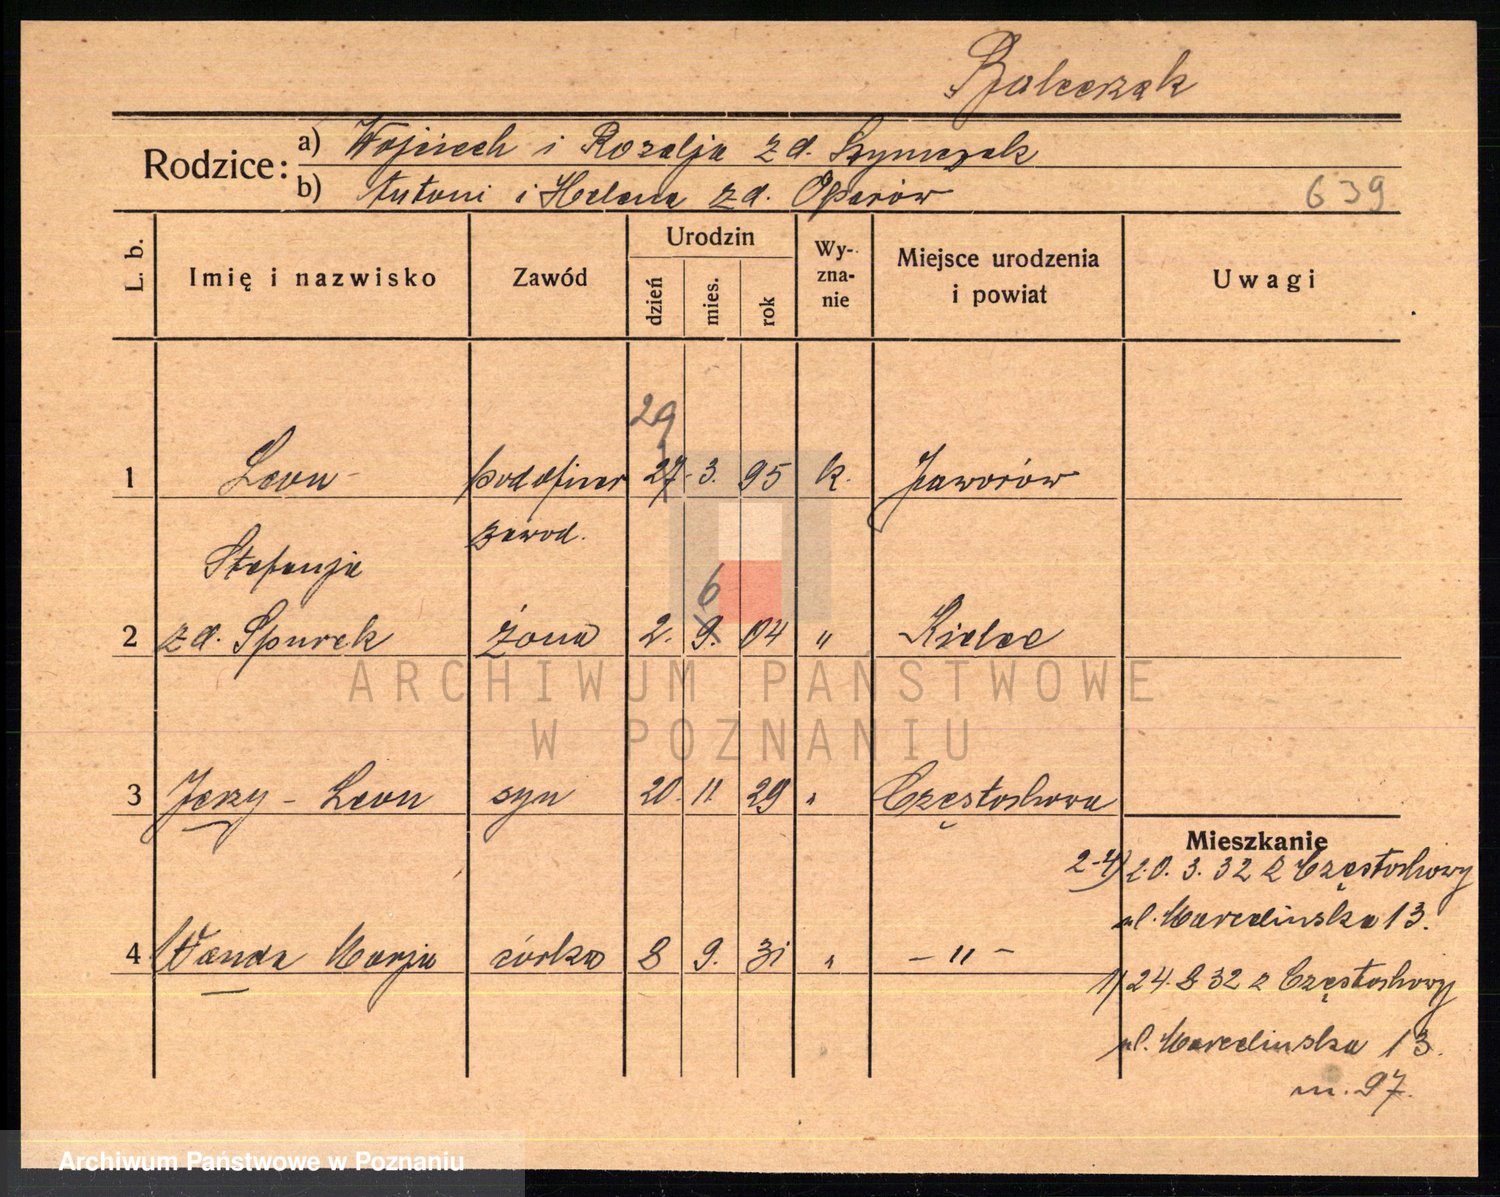 Balcerzak
Rodzice:
a) Wojciech i Rozalja zd. Szymczak
b) Antoni i Helena zd.
639
L. b.
Imię i nazwisko
Zawód
Urodzin
dzień
mies.
rok
Wy-
zna-
nie
Miejsce urodzenia
i powiat
Uwagi
29
1 Leon podoficer 27. 3. 95 k. Jaworów
zawod.
Stefanja
6
2 zd. Spurek żona 2. 9. 04 " Kielce
ARCHIWUM PAŃSTWOWE
W POZNANIU
3 Jerzy - Leon syn 20. 11. 29 " Częstochowa
Mieszkanie
2-4) 20. 3. 32 z Częstochowy
ul. Marcelinska 13.
4 Wanda Marja córka 8 9. 31 " - " -
1) 24. 8 32 z Częstochowy
ul. Marcelinska 13.
m. 97.
Archiwum Państwowe w Poznaniu